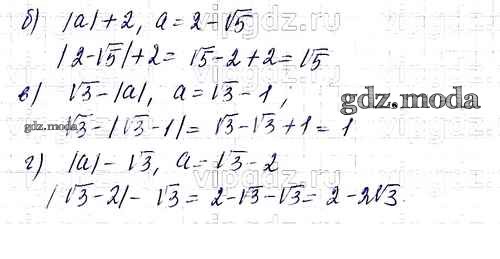 б) |a|+2, a=2-√5
|2-√5|+2= √5-2+2=√5
в) √3-|a|, a=√3-1;
gdz.moda
gdz.moda √3-|√3-1|= √3-√3+1=1
г) |a|-√3, a=√3-2
|√3-2|-√3= 2-√3-√3= 2-2√3.